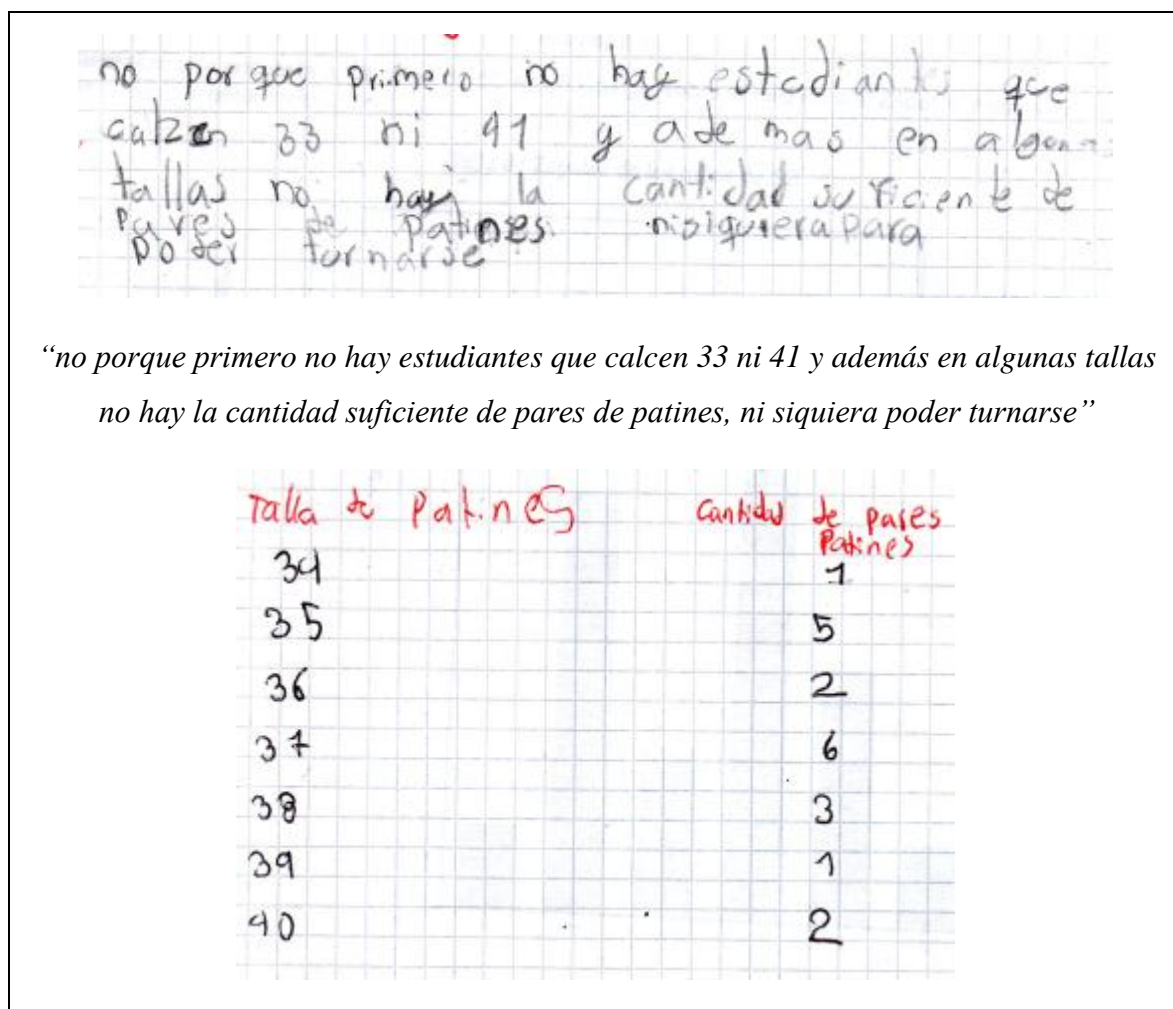 no por que primero no hay estudiantes que
calzen 33 ni 41 y ademas en alguna
tallas no hay la cantidad suficiente de
pares de patines nisiquiera para
poder turnarse
“no porque primero no hay estudiantes que calcen 33 ni 41 y además en algunas tallas
no hay la cantidad suficiente de pares de patines, ni siquiera poder turnarse”
Talla de Patines Cantidad de pares
Patines
34 1
35 5
36 2
37 6
38 3
39 1
40 2